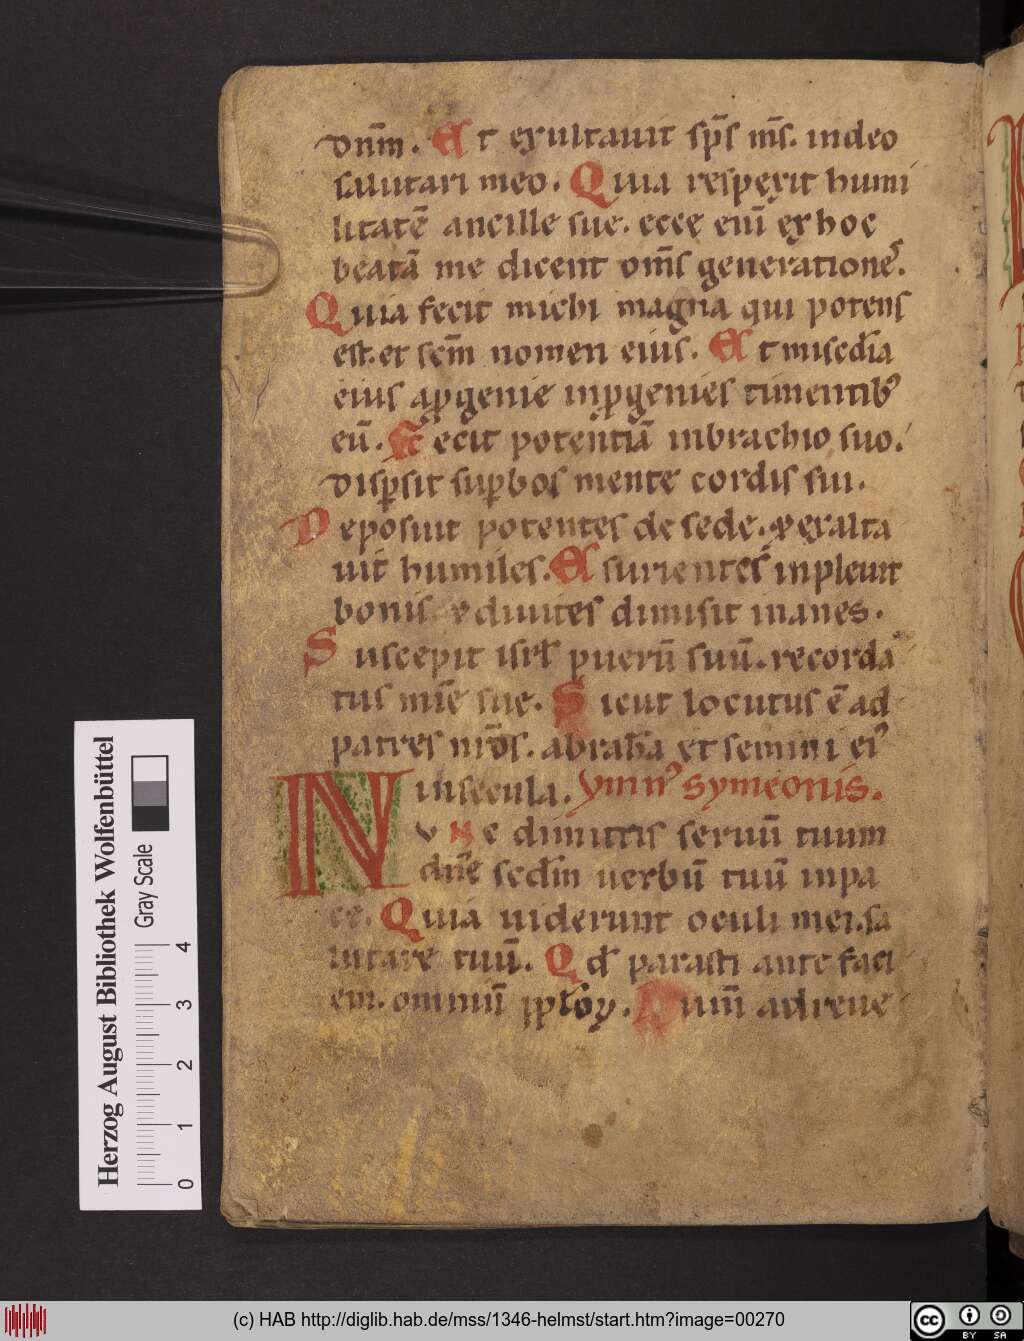 dnm̄. Et exultauit sp̄s m̄s. in deo
salutari meo. Quia respexit humi
litatē ancille sue. ecce eni̅ ex hoc
beatā me dicent om̄s generationeˢ.
Quia fecit michi magna qui potens
est. et scm̄ nomen eius. Et misedi̅a
eius a ꝓgenie in ꝓgenies timentibꝰ
eū. Fecit potentiā in brachio suo.
disꝑsit suꝑbos mente cordis sui.
Deposuit potentes de sede. ⁊ exalta
uit humiles. Esurientes inpleuit
bonis. ⁊ diuites dimisit inanes.
Suscepit isrl̄ puerū suū. recorda
tus mīe sue. Sicut locutus ē ad
patres nr̄os. abrahā et semini eiꝰ
in secula. Ymnꝰ symeonis.
NUNC dimittis seruū tuum
dn̄e secd̄m uerbū tuū in pa
ce. Quia uiderunt oculi mei. sa
lutare tuū. Qd̄ parasti ante faci
em. omniū pp̄loꝝ. Lum̄ ad reue
Herzog August Bibliothek Wolfenbüttel
Gray Scale
0 1 2 3 4
(c) HAB http://diglib.hab.de/mss/1346-helmst/start.htm?image=00270
cc BY SA